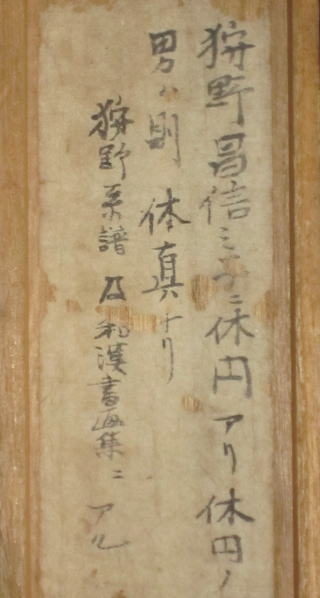 狩野昌信ミ子ニ休円アリ休円ノ
男ハ則 休真ナリ
狩野系譜及和漢書画集ニアル